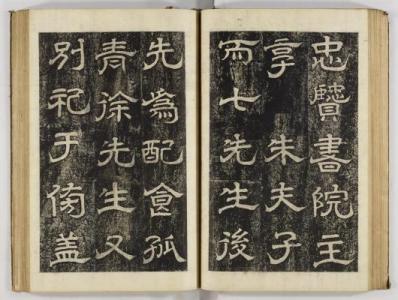 忠贒書院主
享 朱夫子
而七先生後
先爲配食孤
青徐先生又
別祀于傍盖